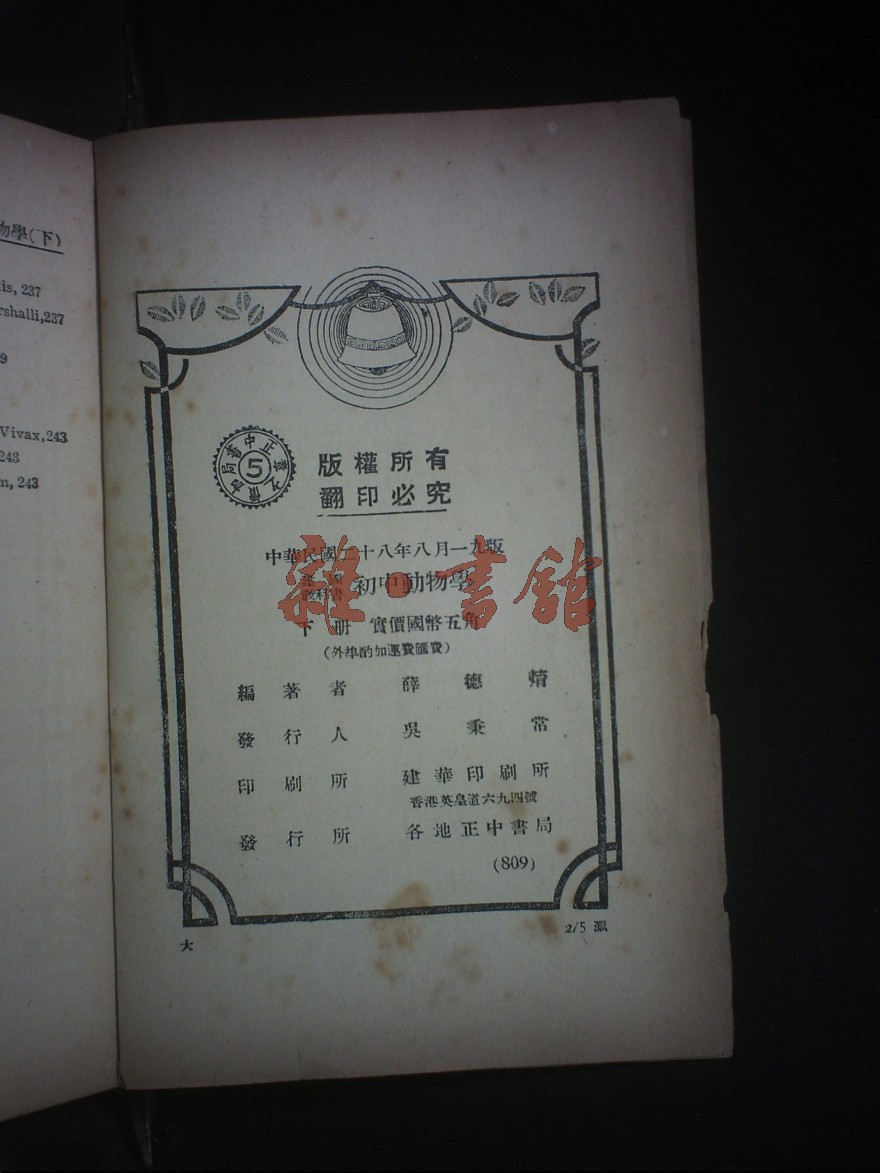 物學(下)
is, 237
rshalli,237
9
Vivax,243
243
m, 243
正中書局
5
版權所有
翻印必究
中華民國二十八年八月一九版
教科書 初中動物學
下册 實價國幣五角
(外埠酌加運費匯費)
編著者 薛德焴
發行人 吳秉常
印刷所 建華印刷所
香港英皇道六九四號
發行所 各地正中書局
(809)
大
2/5 溫
雜·書館